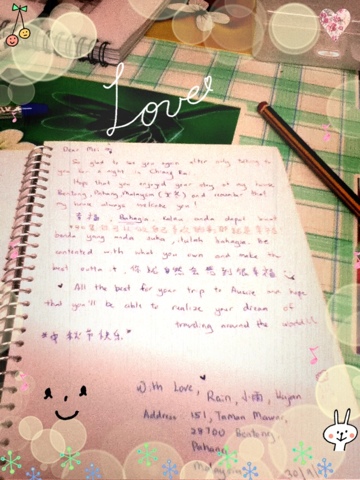 Love
Dear Mei
So glad to see you again after only talking to
you for a night in Chiang Rai.
Hope that you enjoyed your stay at my house,
Bentong, Pahang, Malaysia and remember that
my house always welcome you!
幸福, Bahagia. Kalau anda dapat buat
benda yang anda suka, itulah bahagia. Be
contented with what you own and make the
best outta it. 你
All the best for your trip to Aussie and hope
that you'll be able to realize your dream of
travelling around the world!!
*中秋节快乐*
With Love, Rain, 小雨, Hujan
Address: 151, Taman Mawar,
28700 Bentong
Pahang
Malaysia
30/9/